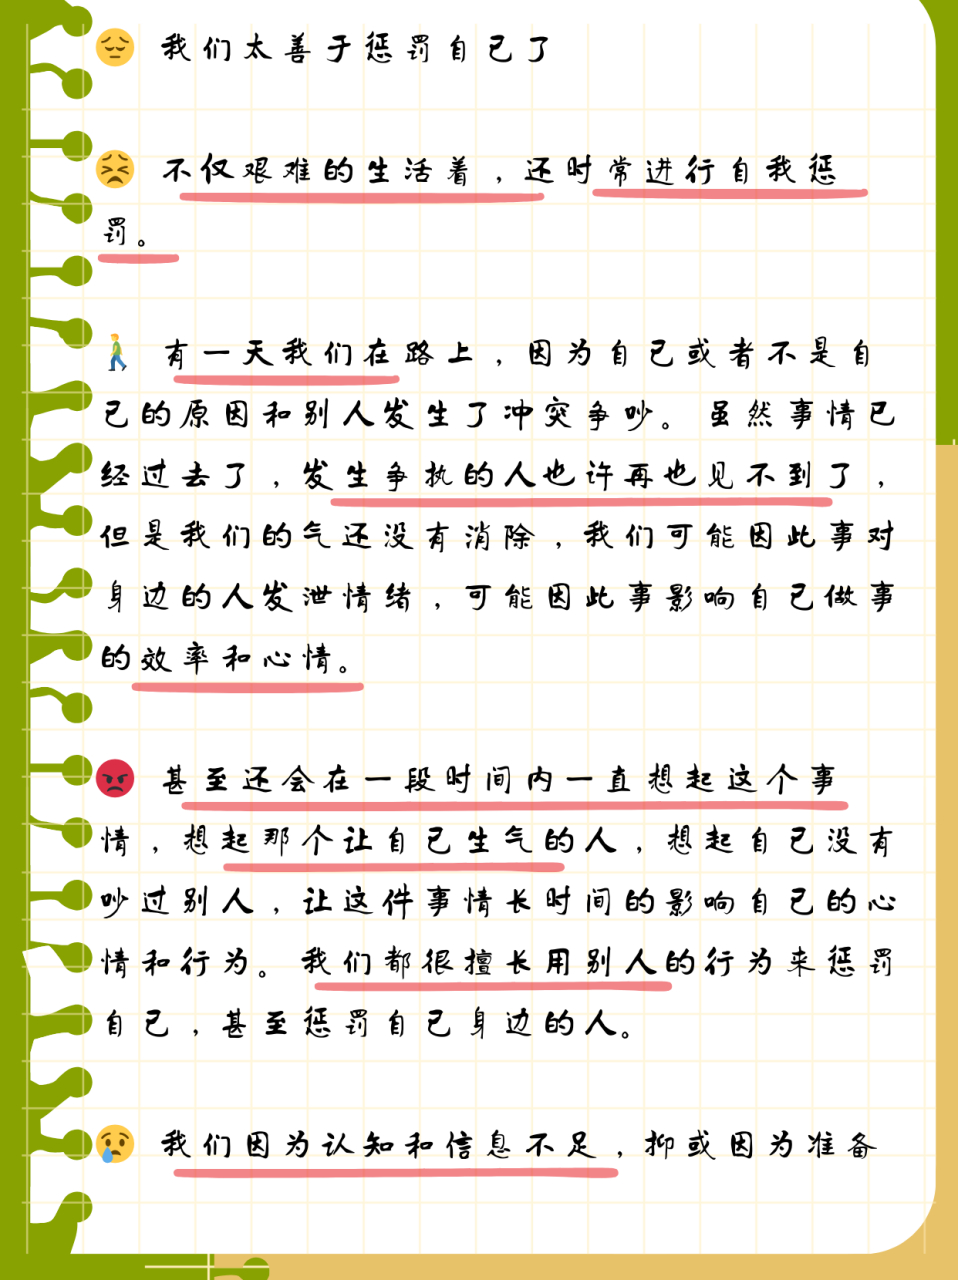 😔 我们太善于惩罚自己了
😣 不仅艰难的生活着，还时常进行自我惩
罚。
🚶 有一天我们在路上，因为自己或者不是自
己的原因和别人发生了冲突争吵。虽然事情已
经过去了，发生争执的人也许再也见不到了，
但是我们的气还没有消除，我们可能因此事对
身边的人发泄情绪，可能因此事影响自己做事
的效率和心情。
😡 甚至还会在一段时间内一直想起这个事
情，想起那个让自己生气的人，想起自己没有
吵过别人，让这件事情长时间的影响自己的心
情和行为。我们都很擅长用别人的行为来惩罚
自己，甚至惩罚自己身边的人。
😢 我们因为认知和信息不足，抑或因为准备